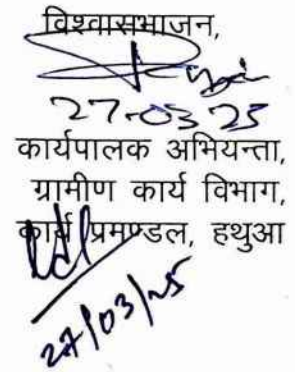 विश्वासभाजन,
27-03-25
कार्यपालक अभियन्ता,
ग्रामीण कार्य विभाग,
कार्य प्रमण्डल, हथुआ
27/03/25